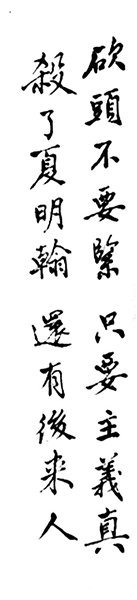 砍頭不要緊 只要主義真
殺了夏明翰 還有後来人